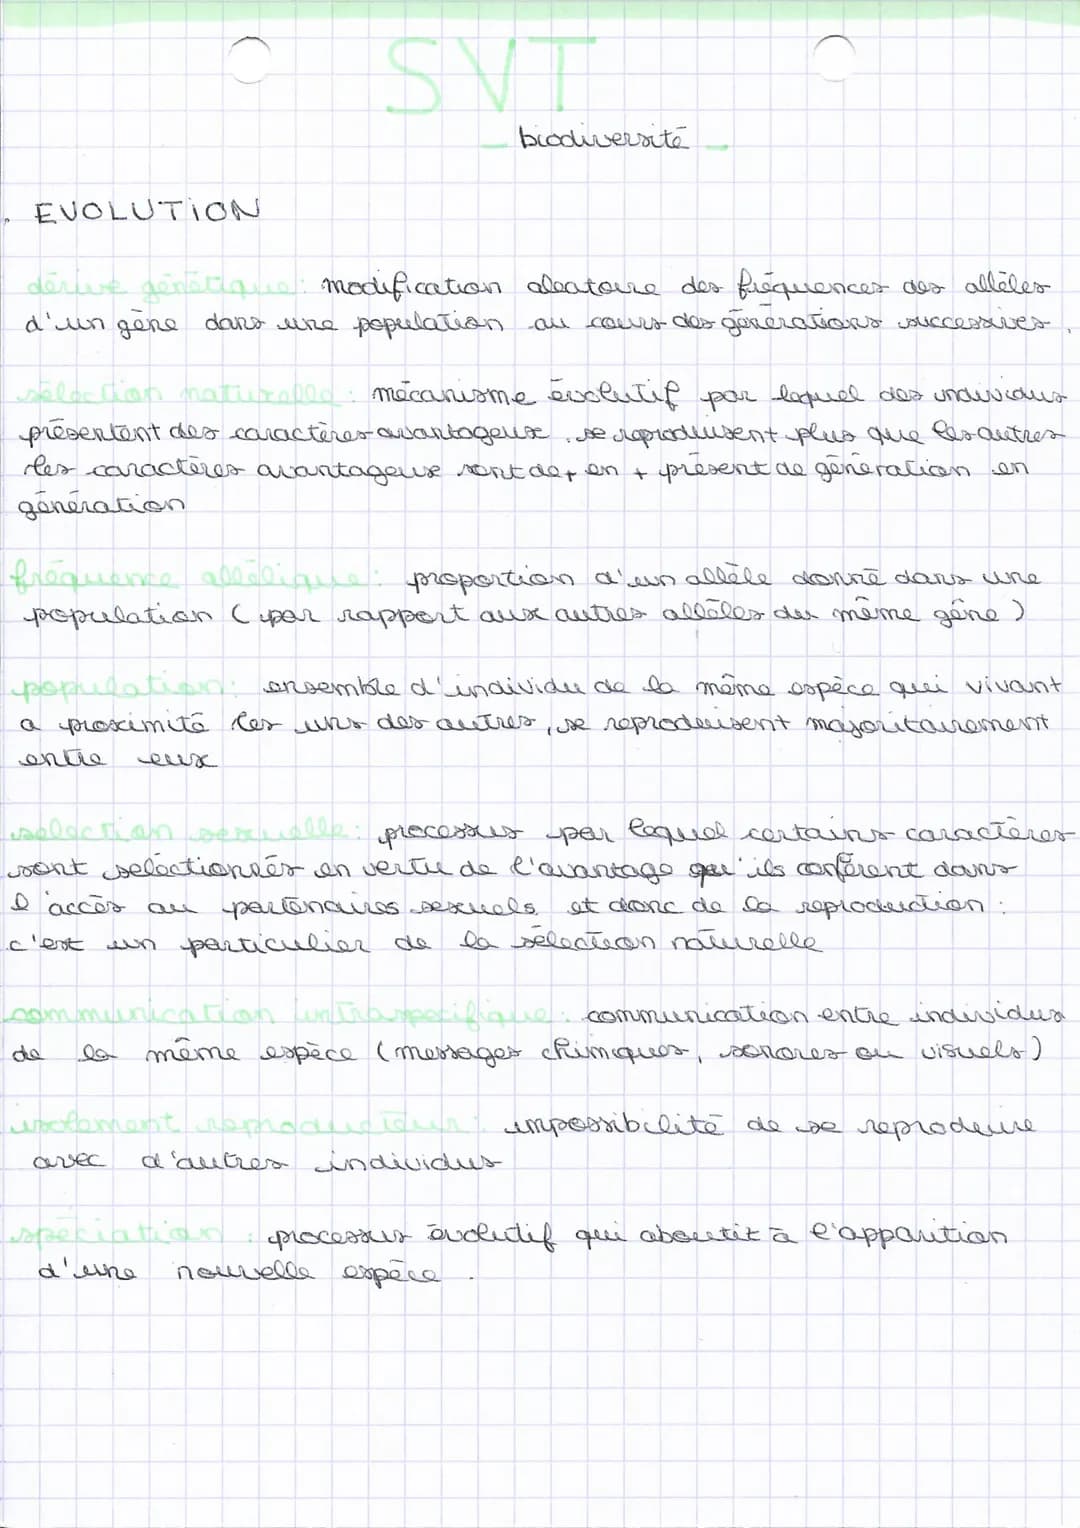 SVT
biodiversité
. EVOLUTION
dérive génétique : modification aleatoire des fréquences des allèles
d'un gène dans une population au cours des générations successives.
sélection naturelle : mécanisme évolutif par lequel des individus
présentant des caractères avantageux, se reproduisent plus que les autres
les caractères avantageux sont de + en + présent de génération en
génération
fréquence allélique : proportion d'un allèle donné dans une
population (par rapport aux autres allèles du même gène)
population : ensemble d'individu de la même espèce qui vivant
a proximité les uns des autres, se reproduisent majoritairement
entre eux
selection sexuelle : processus par lequel certains caractères
sont seléctionnés en vertu de l'avantage qu'ils confèrent dans
l'accès au partenaires sexuels et donc de la reproduction :
c'est un particulier de la sélection naturelle
communication intraspecifique : communication entre individus
de la même espèce (messages chimiques, sonores ou visuels)
isolement reproducteur : impossibilité de se reproduire
avec d'autres individus
spéciation : processus évolutif qui aboutit à l'apparition
d'une nouvelle espèce.